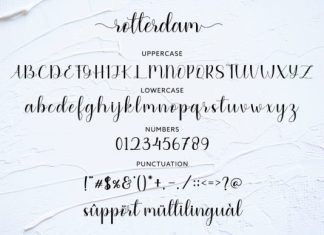 rotterdam
UPPERCASE
ABCDEFGHIJKLMNOPQRSTUVWXYZ
LOWERCASE
abcdefghijklmnopqrstuvwxyz
NUMBERS
0123456789
PUNCTUATION
!"#$%&'()*+,-./:;<=>?@
sûppört mûltîlîngùàl